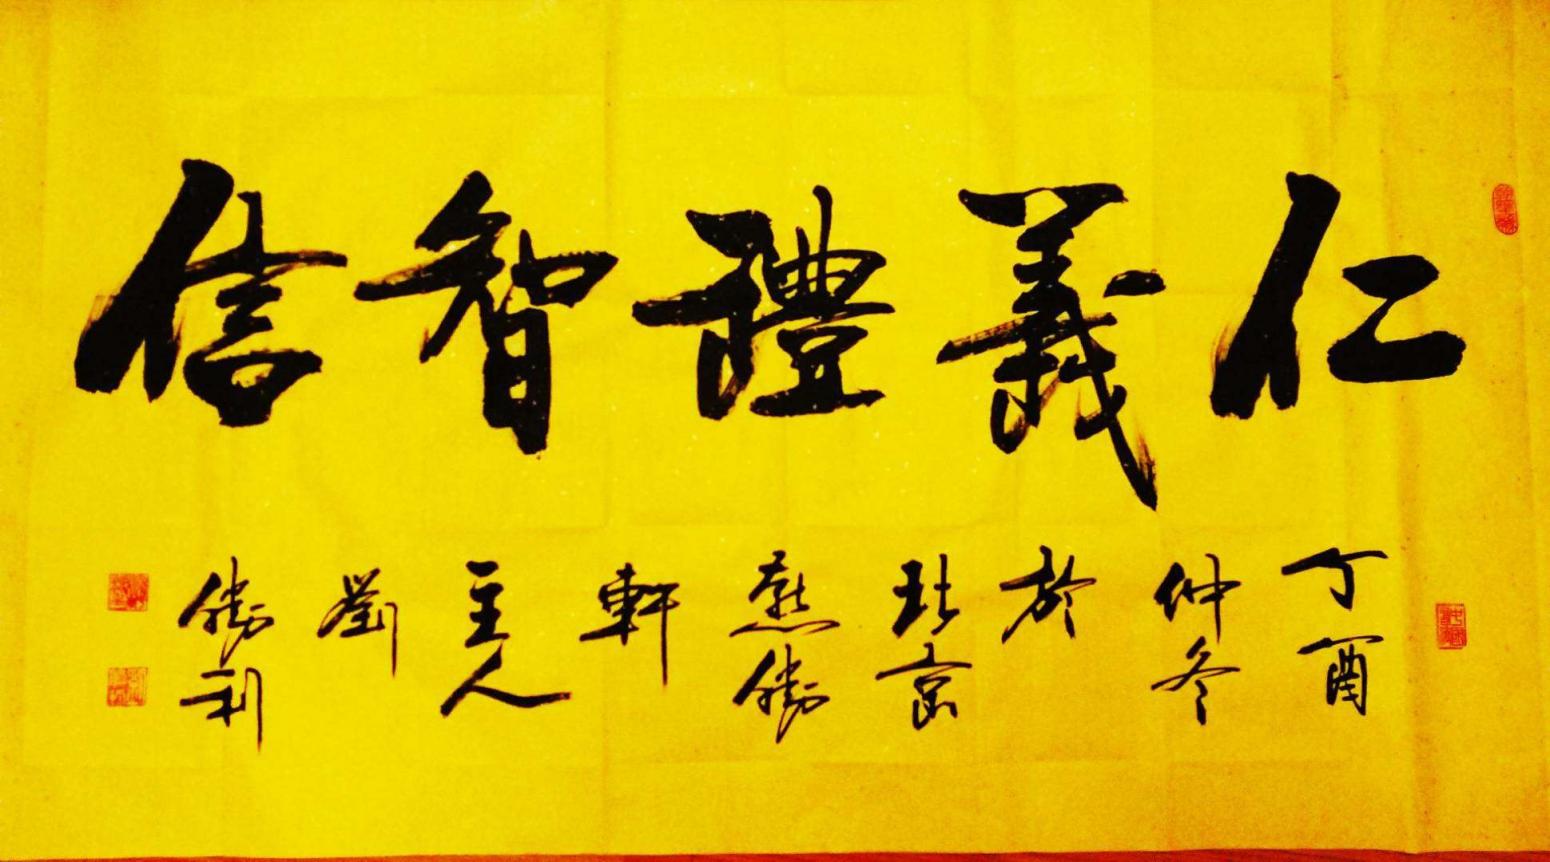 仁義禮智信
丁酉
仲冬
於
北京
燕勝
軒
主人
劉
勝利